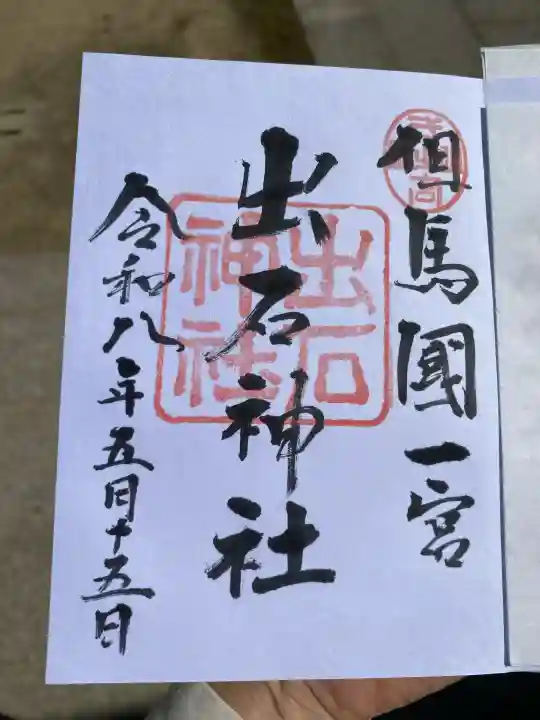 但馬國一宮
出石神社
出石
神社
令和八年五月十五日